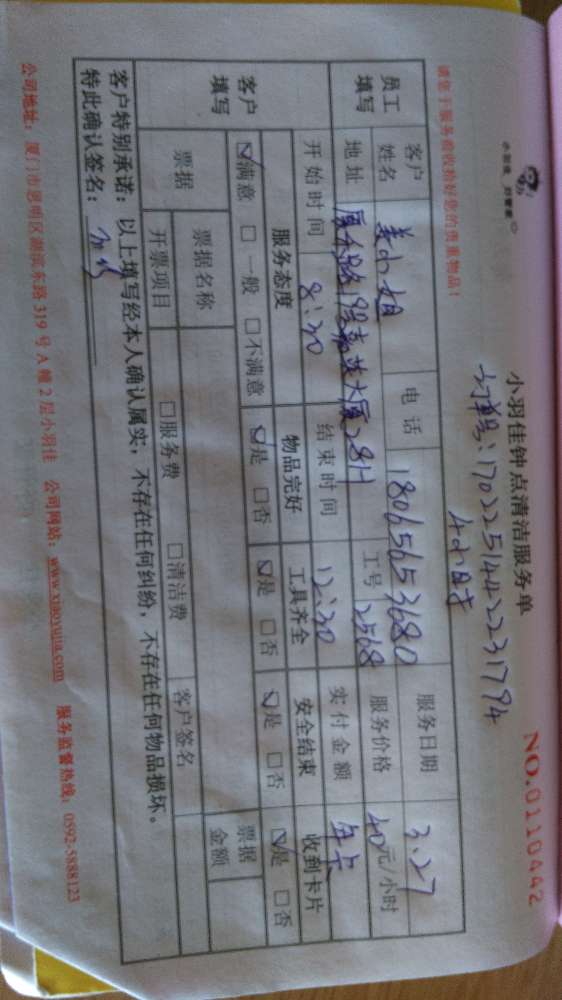 小羽佳钟点清洁服务单
NO.0110442
订单号:17022514422231794
4小时
请您于服务验收拾好您的贵重物品!
员工填写
客户姓名 姜小姐 电话 18065653680 服务日期 3.27
地址 大厦28H 工号 2568 服务价格 40元/小时
开始时间 8:30 结束时间 12:30 实付金额 年卡
客户填写
服务态度 物品完好 工具齐全 安全结束 收到卡片
☑满意 □一般 □不满意 ☑是 □否 ☑是 □否 ☑是 □否 ☑是 □否
票据 票据名称 票据金额
开票项目 □服务费 □清洁费 客户签名
客户特别承诺:以上填写经本人确认属实,不存在任何纠纷,不存在任何物品损坏。
特此确认签名:
公司地址:厦门市思明区湖滨东路319号A幢2层小羽佳 公司网站:www.xiaoyujia.com 服务监督热线:0592-5888123